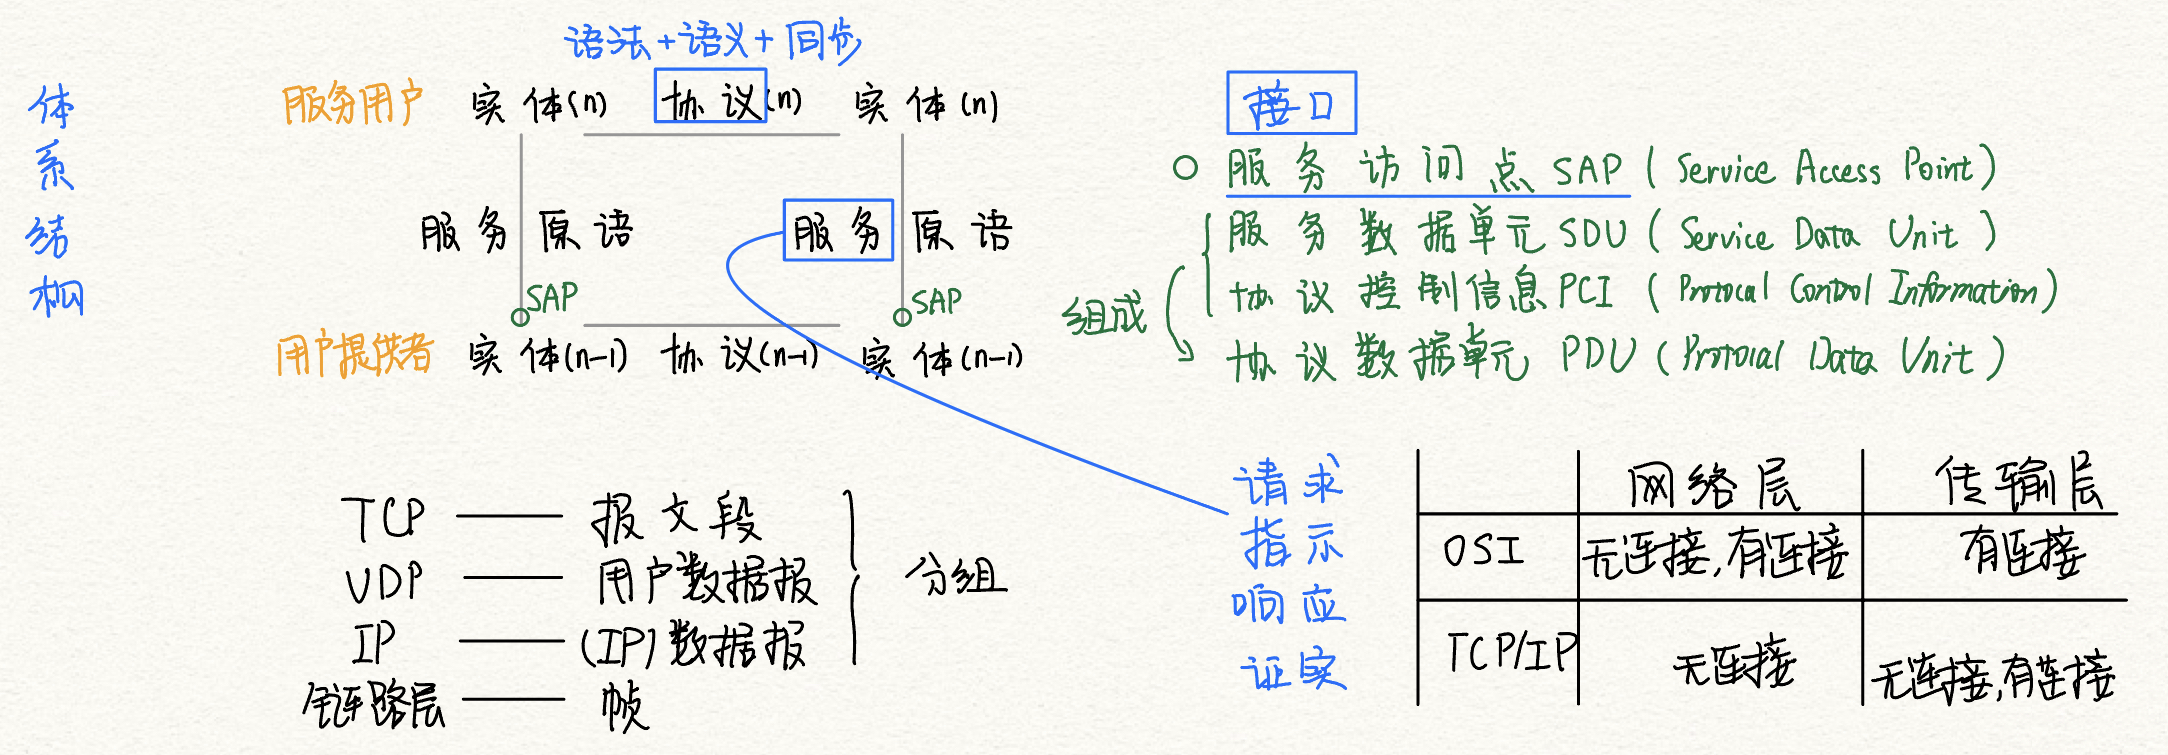 体系结构
语法+语义+同步
服务用户 实体(n) 协议(n) 实体(n)
服务原语 服务原语
SAP SAP
用户提供者 实体(n-1) 协议(n-1) 实体(n-1)
接口
服务访问点 SAP (Service Access Point)
服务数据单元 SDU (Service Data Unit)
协议控制信息 PCI (Protocal Control Information)
组成
协议数据单元 PDU (Protocal Data Unit)
TCP 报文段
UDP 用户数据报
IP (IP)数据报
链路层 帧
分组
请求
指示
响应
证实
网络层 传输层
OSI 无连接,有连接 有连接
TCP/IP 无连接 无连接,有连接